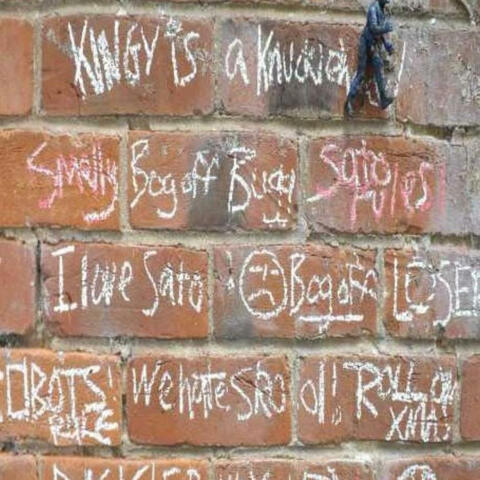 KINGY is a Knucklehead!
Smelly Bog off Bucky Sato rules
I love Sato Bog off LOSER
ROBOTS! RULE We hate Skool! ROLL ON XMAS